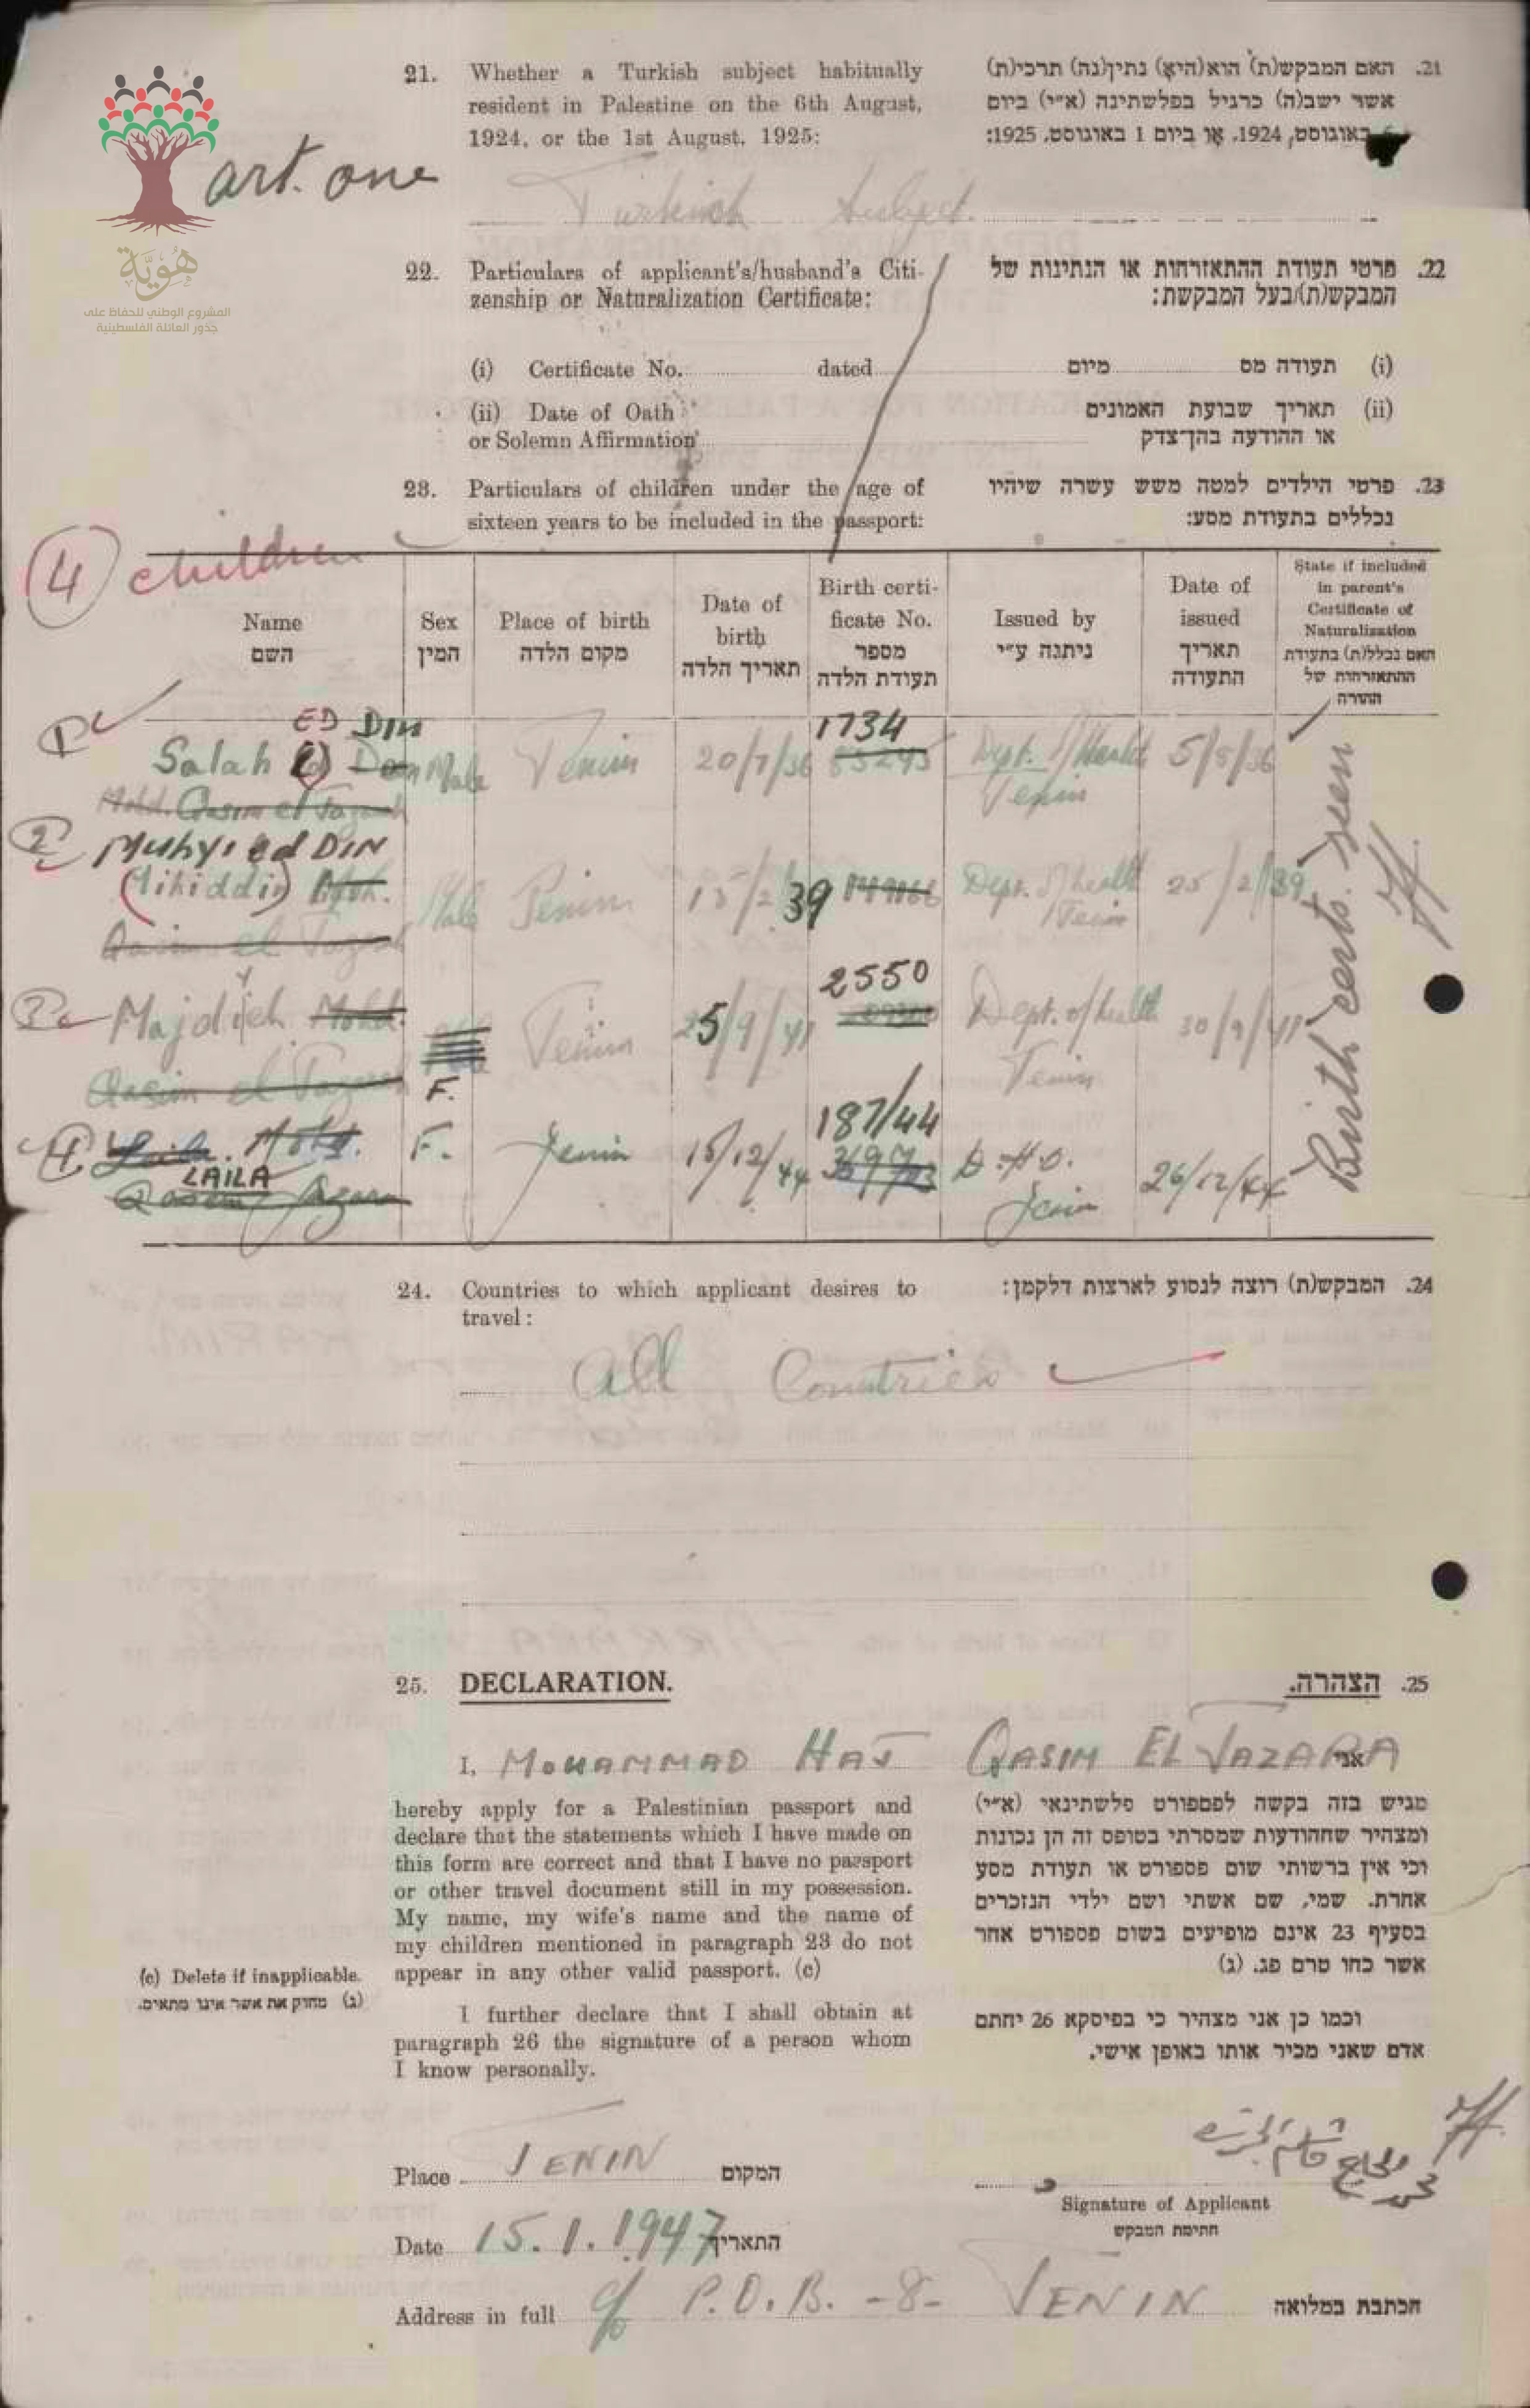 21. Whether a Turkish subject habitually
resident in Palestine on the 6th August,
1924, or the 1st August, 1925:
21. האם המבקש(ת) הוא(היא) נתין(נה) תרכי(ת)
אשר ישב(ה) כרגיל בפלשתינה (א״י) ביום
באוגוסט, 1924, או ביום 1 באוגוסט, 1925:
art. one
Turkish Subject.
هوية
المشروع الوطني للحفاظ على
جذور العائلة الفلسطينية
22. Particulars of applicant's/husband's Citi-
zenship or Naturalization Certificate:
22. פרטי תעודת ההתאזרחות או הנתינות של
המבקש(ת)/בעל המבקשת:
(i) Certificate No. dated
(i) תעודה מס מיום
(ii) Date of Oath
or Solemn Affirmation
(ii) תאריך שבועת האמונים
או ההודעה בהן־צדק
23. Particulars of children under the age of
sixteen years to be included in the passport:
23. פרטי הילדים למטה משש עשרה שיהיו
נכללים בתעודת מסע:
4 children
Name
השם
Sex
המין
Place of birth
מקום הלדה
Date of
birth
תאריך הלדה
Birth certi-
ficate No.
מספר
תעודת הלדה
Issued by
ניתנה ע״י
Date of
issued
תאריך
התעודה
State if included
in parent's
Certificate of
Naturalization
האם נכלל(ת) בתעודת
ההתאזרחות של
ההורה
1 ED DIN 1734
Salah Male Jenin 20/7/36 Dept. of Health 5/8/36
Mohd. Qasim el Jazara Jenin
2 Muhyi ed DIN
(Mihiddin) Moh. Male Jenin 15/2/39 Dept. of health 25/2/39
Qasim el Jazara Jenin
2550
3 Majdiyeh Mohd. Jenin 25/9/41 Dept. of health 30/9/41
Qasim el Jazara F. Jenin
187/44
4 Laila Mohd. F. Jenin 15/12/44 D.H.O. 26/12/44
LAILA Jenin
Qasem Jazara
Birth certs. seen
24. Countries to which applicant desires to
travel:
24. המבקש(ת) רוצה לנסוע לארצות דלקמן:
All Countries
25. DECLARATION.
25. הצהרה.
I, MOHAMMAD HAJ QASIM EL JAZARA אני
hereby apply for a Palestinian passport and
declare that the statements which I have made on
this form are correct and that I have no passport
or other travel document still in my possession.
My name, my wife's name and the name of
my children mentioned in paragraph 23 do not
appear in any other valid passport. (c)
מגיש בזה בקשה לפספורט פלשתינאי (א״י)
ומצהיר שההודעות שמסרתי בטופס זה הן נכונות
וכי אין ברשותי שום פספורט או תעודת מסע
אחרת. שמי, שם אשתי ושם ילדי הנזכרים
בסעיף 23 אינם מופיעים בשום פספורט אחר
אשר כחו טרם פג. (ג)
(c) Delete if inapplicable.
(ג) מחוק את אשר אינו מתאים.
I further declare that I shall obtain at
paragraph 26 the signature of a person whom
I know personally.
וכמו כן אני מצהיר כי בפיסקא 26 יחתם
אדם שאני מכיר אותו באופן אישי.
Place JENIN המקום
Signature of Applicant
חתימת המבקש
Date 15.1.1947 התאריך
Address in full c/o P.O.B. -8- JENIN הכתבת במלואה